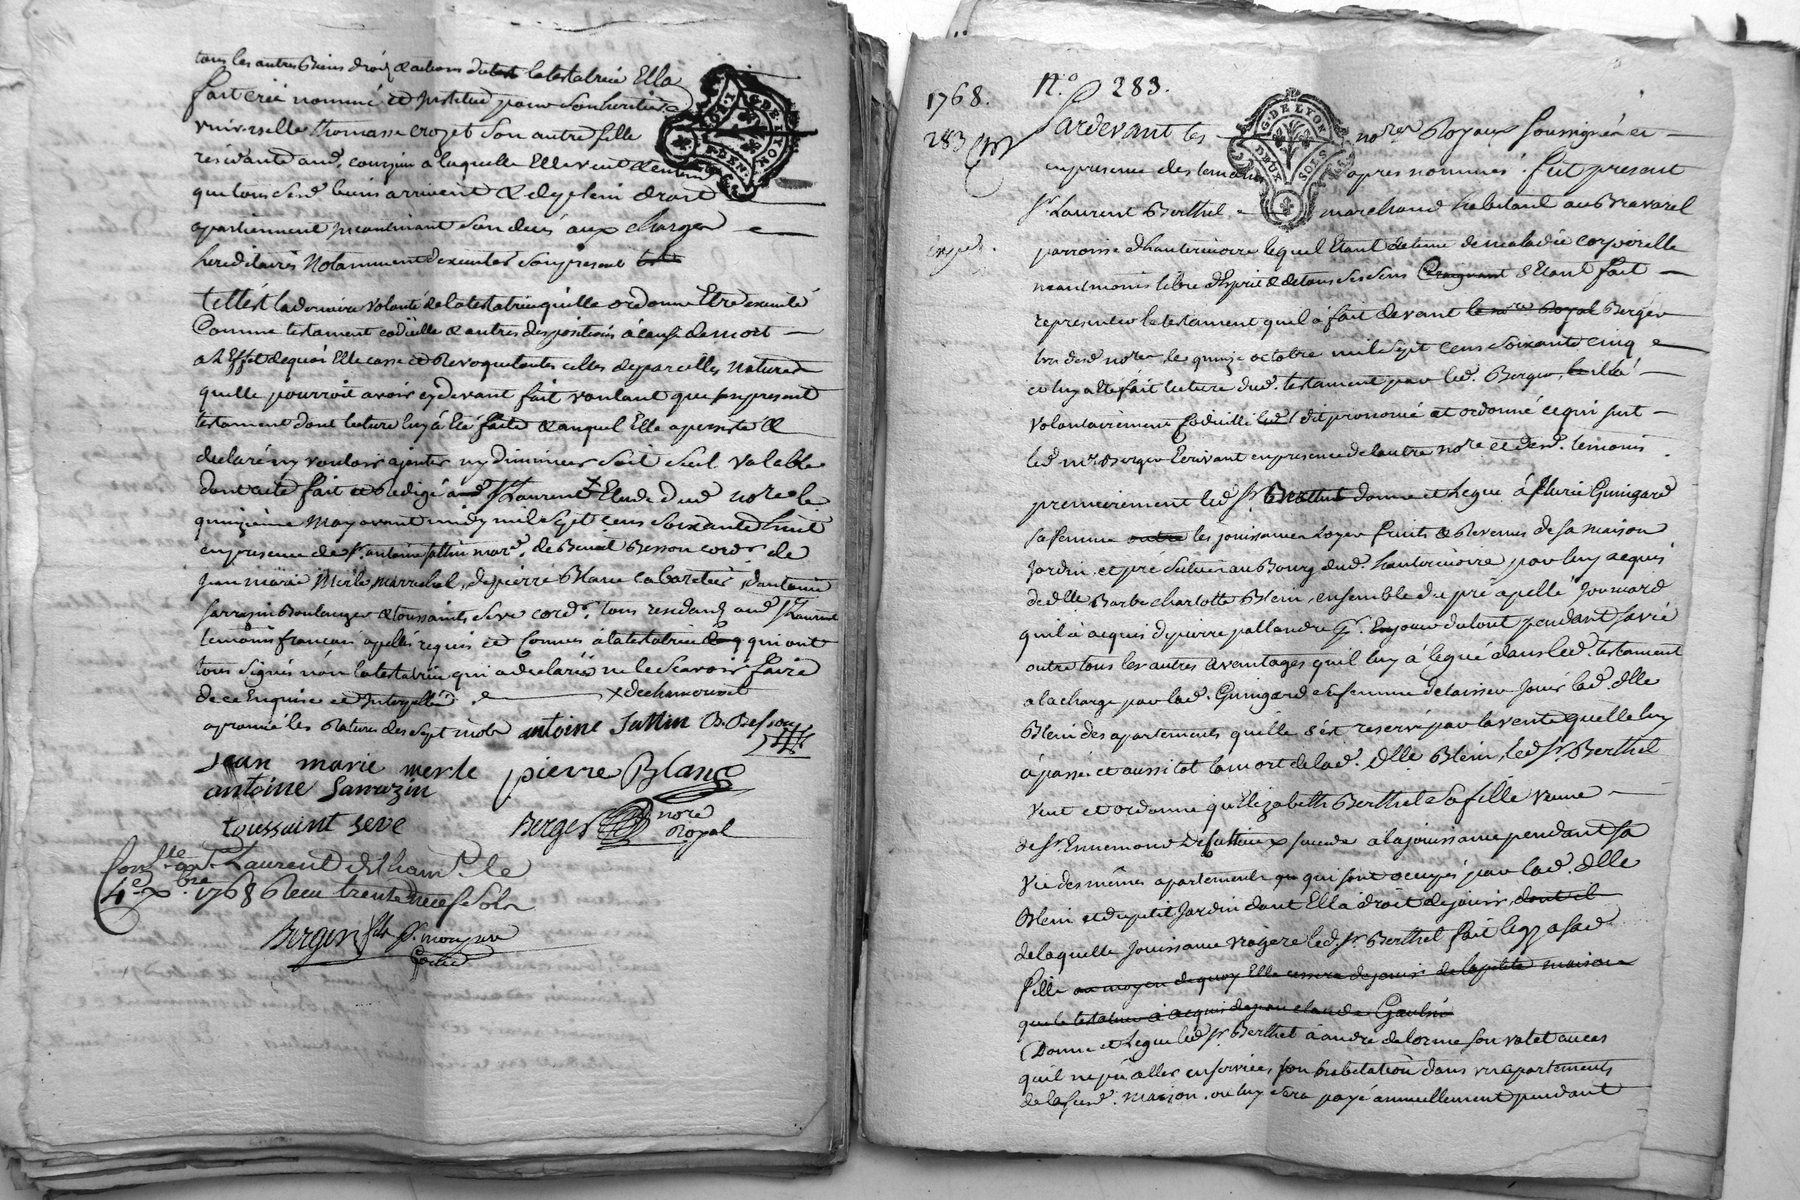 tous les autres Biens droits & actions de lad. testatrice Elle
fait crée nommé et Institue pour son heritiere
universelle thomasse crozet son autre fille
residante aud. couzon a laquelle Elle veut & entend
que tous sesd. biens arrivent & de plein droit
apartiennent incontinant son décès aux charges
hereditaires Notamment dexecuter son present
telle est la derniere volonté de la testatrice quelle ordonne Être executé
Comme testament codicille & autres dispositions à cause de mort
a l'Effet de quoi Elle casse et Revoque toutes celles de pareilles natures
quelle pourroit avoir cydevant fait voulant que son present
testament dont lecture luy à été faite & auquel Elle a persisté &
declaré ny vouloir ajouter ny diminuer soit seul valable
dont acte fait et Redigé aud. St Laurent Etude dud. nore le
quinzieme May avant midy mil Sept cens Soixante huit
en presence de sr. antoine Jullin mard. de Benoit Besson cordr. de
jean marie Merle marechal, de pierre Blanc cabaretier, d'antoine
Sarrazin Boulanger & toussaint Seve cordr. tous residants aud. St Laurent
temoins francois apellés requis et Connus a la testatrice qui ont
tous signés non la testatrice qui a declaré ne le scavoir faire
de ce Enquise et Interpellée. x dechamousset
aprouvé les Ratures des sept mots antoine Jullin B. Besson
jean marie merle pierre Blanc
antoine Sarrazin
toussaint seve Berger nore Royal
Conlle a St Laurent de Cham. le
4e xbre 1768 Reçu trente neuf sols
Berger
N.o 283.
1768.
283
G. DE LYON
DEUX SOLS
Pardevant les nores Royaux soussignés et
en presence des temoins apres nommés fut present
sr. Laurent Berthel marchand habitant au Bravarel
parroisse d'hauterivoire lequel Etant detenu de maladie corporelle
neantmoins libre d'Esprit & de tous ses sens Craignant s'Etant fait
representer le testament quil à fait devant le nore Royal Berger
lun desd. nores le quinze octobre mil sept cens soixante cinq
et luy a été fait lecture dud. testament par led. Berger, il a
volontairement Codicillé dit prononcé et ordonné ce qui suit
led. mr. Berger Ecrivant en presence de l'autre nore et desd. temoins.
premierement led. sr. Berthel donne et Legue à fleurie Guingard
sa femme outre les jouissances Loyer fruits & Revenus de sa maison
Jardin, et pré situés au Bourg dud. hauterivoire par luy acquis
de dlle Barbe charlotte Blein, ensemble du pré apellé Journard
quil à acquis de pierre pallandre pr. En jouir du tout pendant sa vie
outre tous les autres avantages quil luy à legué dans led. testament
a la charge par lad. Guingard sa femme de laisser Jouir lad. dlle
Blein des apartements quelle s'est reservé par la vente quelle luy
à passé et aussitot la mort de lad. dlle Blein, led. sr. Berthel
veut et ordonne qu'Elizabeth Berthel sa fille veuve
de sr. Ennemond Desuttieux succede a la jouissance pendant sa
vie des mêmes apartements qui sont occupés par lad. dlle
Blein et du petit Jardin dont Elle à droit de jouir dont il
de laquelle Jouissance viagere led. sr. Berthel fait legs a sad.
fille au moyen de quoy Elle cessera de jouir de la petite maison
que le testateur à acquis de jean claude Gaulin
Donne et Legue led. sr. Berthel à andré delorme son valet au cas
quil ne pu aller en service, son habitation dans un apartements
de la susd. maison. ou luy sera payé annuellement pendant